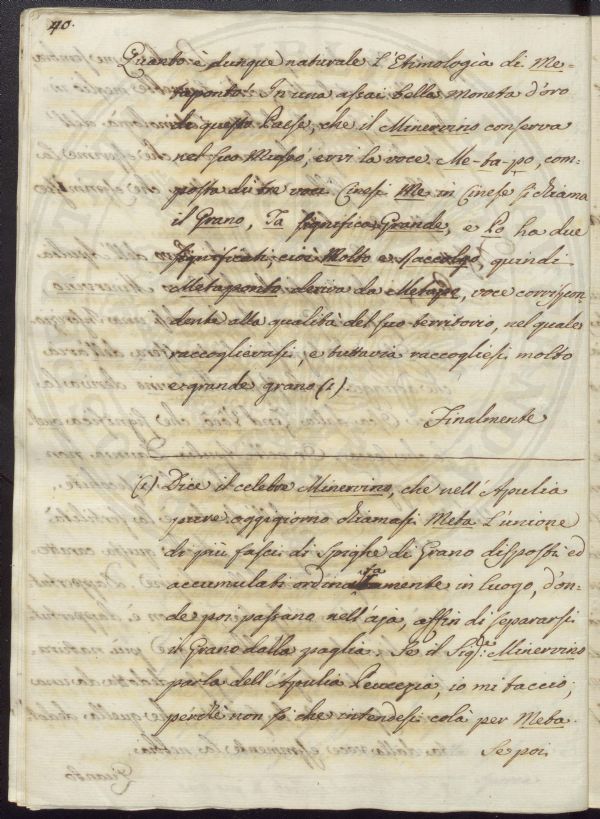 40.
Quanto è dunque naturale l'Etimologia di Me-
taponto! In una assai bella moneta d'oro
di questo Paese, che il Minervino conserva
nel suo Museo, evvi la voce Me-ta-po, com-
posta di tre voci Cinesi Me in Cinese si chiama
il Grano, Ta significa Grande, e Po ha due
significati, cioè Molto e Raccolgo, quindi
Metaponto deriva da Metapo, voce corrispon
dente alla qualità del suo territorio, nel quale
raccoglievasi, e tuttavia raccogliesi molto
e grande grano (1).
Finalmente
(1) Dice il celebre Minervino, che nell'Apulia
pure oggigiorno chiamasi Meta l'unione
di più fasci di Spighe di Grano disposti ed
accumulati ordinatamente in luogo, d'on-
de poi passano nell'aja, affin di separarsi
il Grano dalla paglia. Se il Sigre: Minervino
parla dell'Apulia Peucezia, io mi taccio;
perchè non so che intendesi colà per Meta.
Se poi